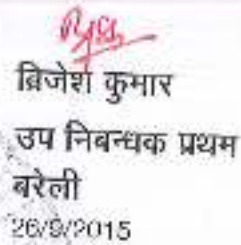 ब्रिजेश कुमार
उप निबन्धक प्रथम
बरेली
26/9/2015